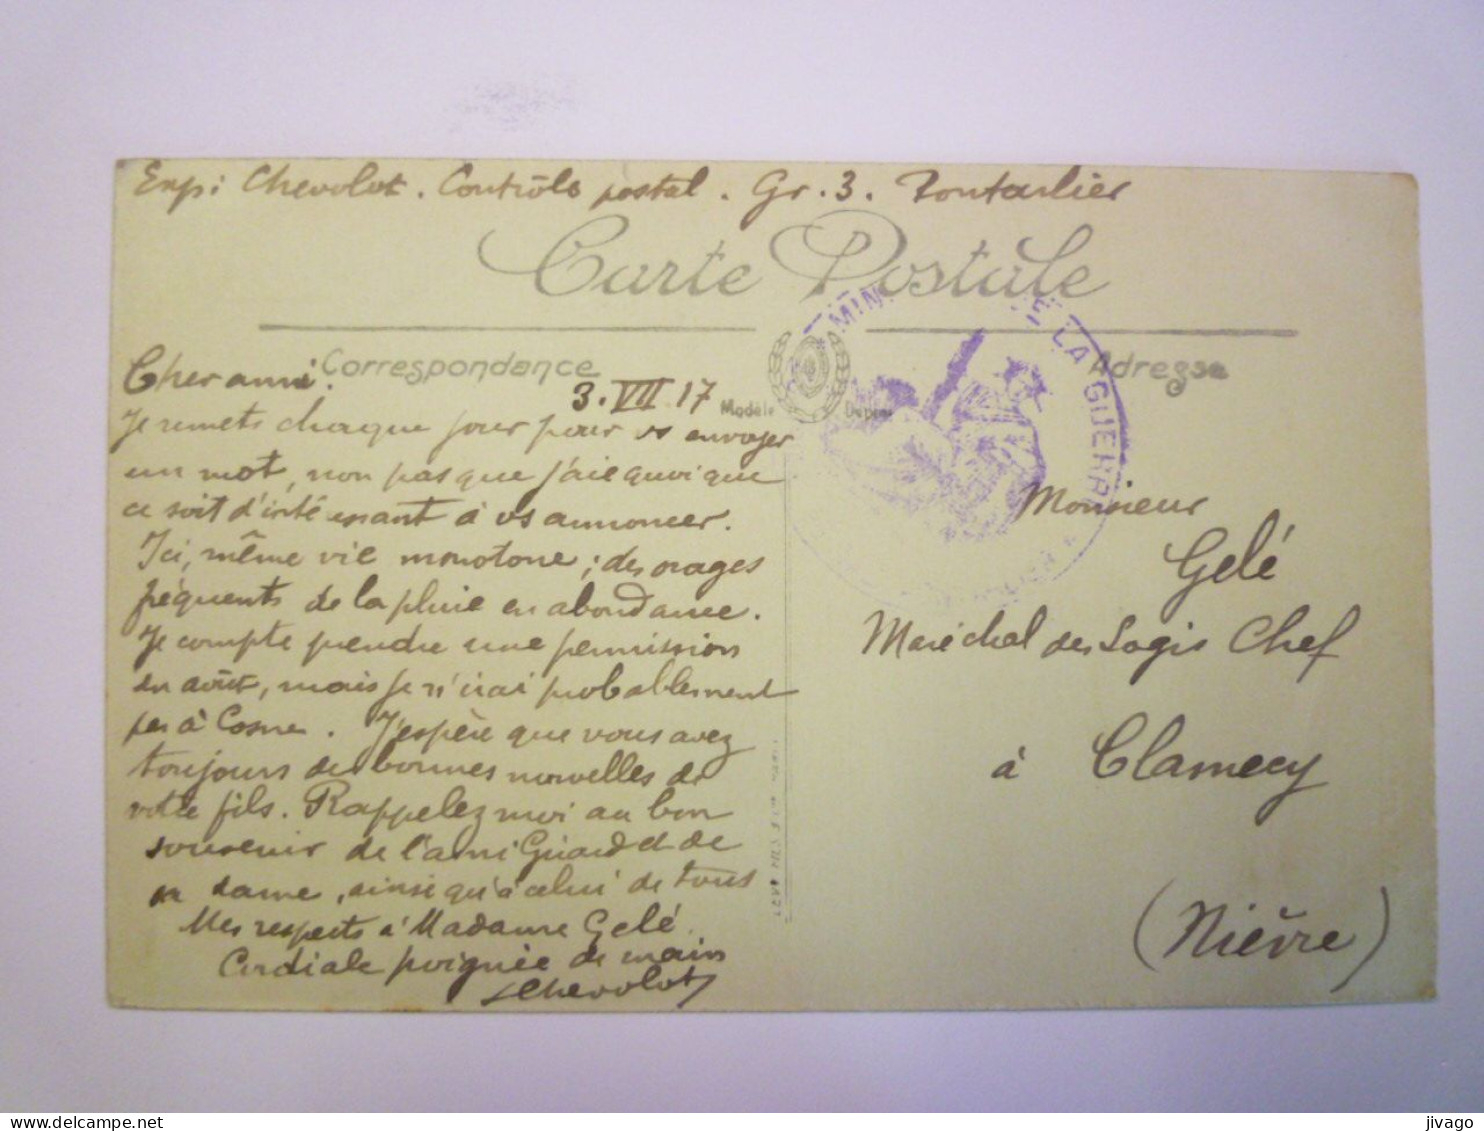 Exp: Chevolot. Contrôle postal. Gr. 3. Pontarlier
Carte Postale
MIN DE LA GUERRE
Correspondance
Adresse
Modèle Déposé
3. VII 17
Cher ami.
Je remets chaque jour pour vs envoyer
un mot, non pas que j'aie quoi que
ce soit d'intéressant à vs annoncer.
Ici, même vie monotone ; des orages
fréquents de la pluie en abondance.
Je compte prendre une permission
en août, mais je n'irai probablement
pas à Cosne. J'espère que vous avez
toujours de bonnes nouvelles de
votre fils. Rappelez moi au bon
souvenir de l'ami Girard et de
sa dame, ainsi qu'à celui de tous
Mes respects à Madame Gelé
Cordiale poignée de main
Chevolot
Monsieur
Gelé
Maréchal des Logis Chef
à Clamecy
(Nièvre)
jivago